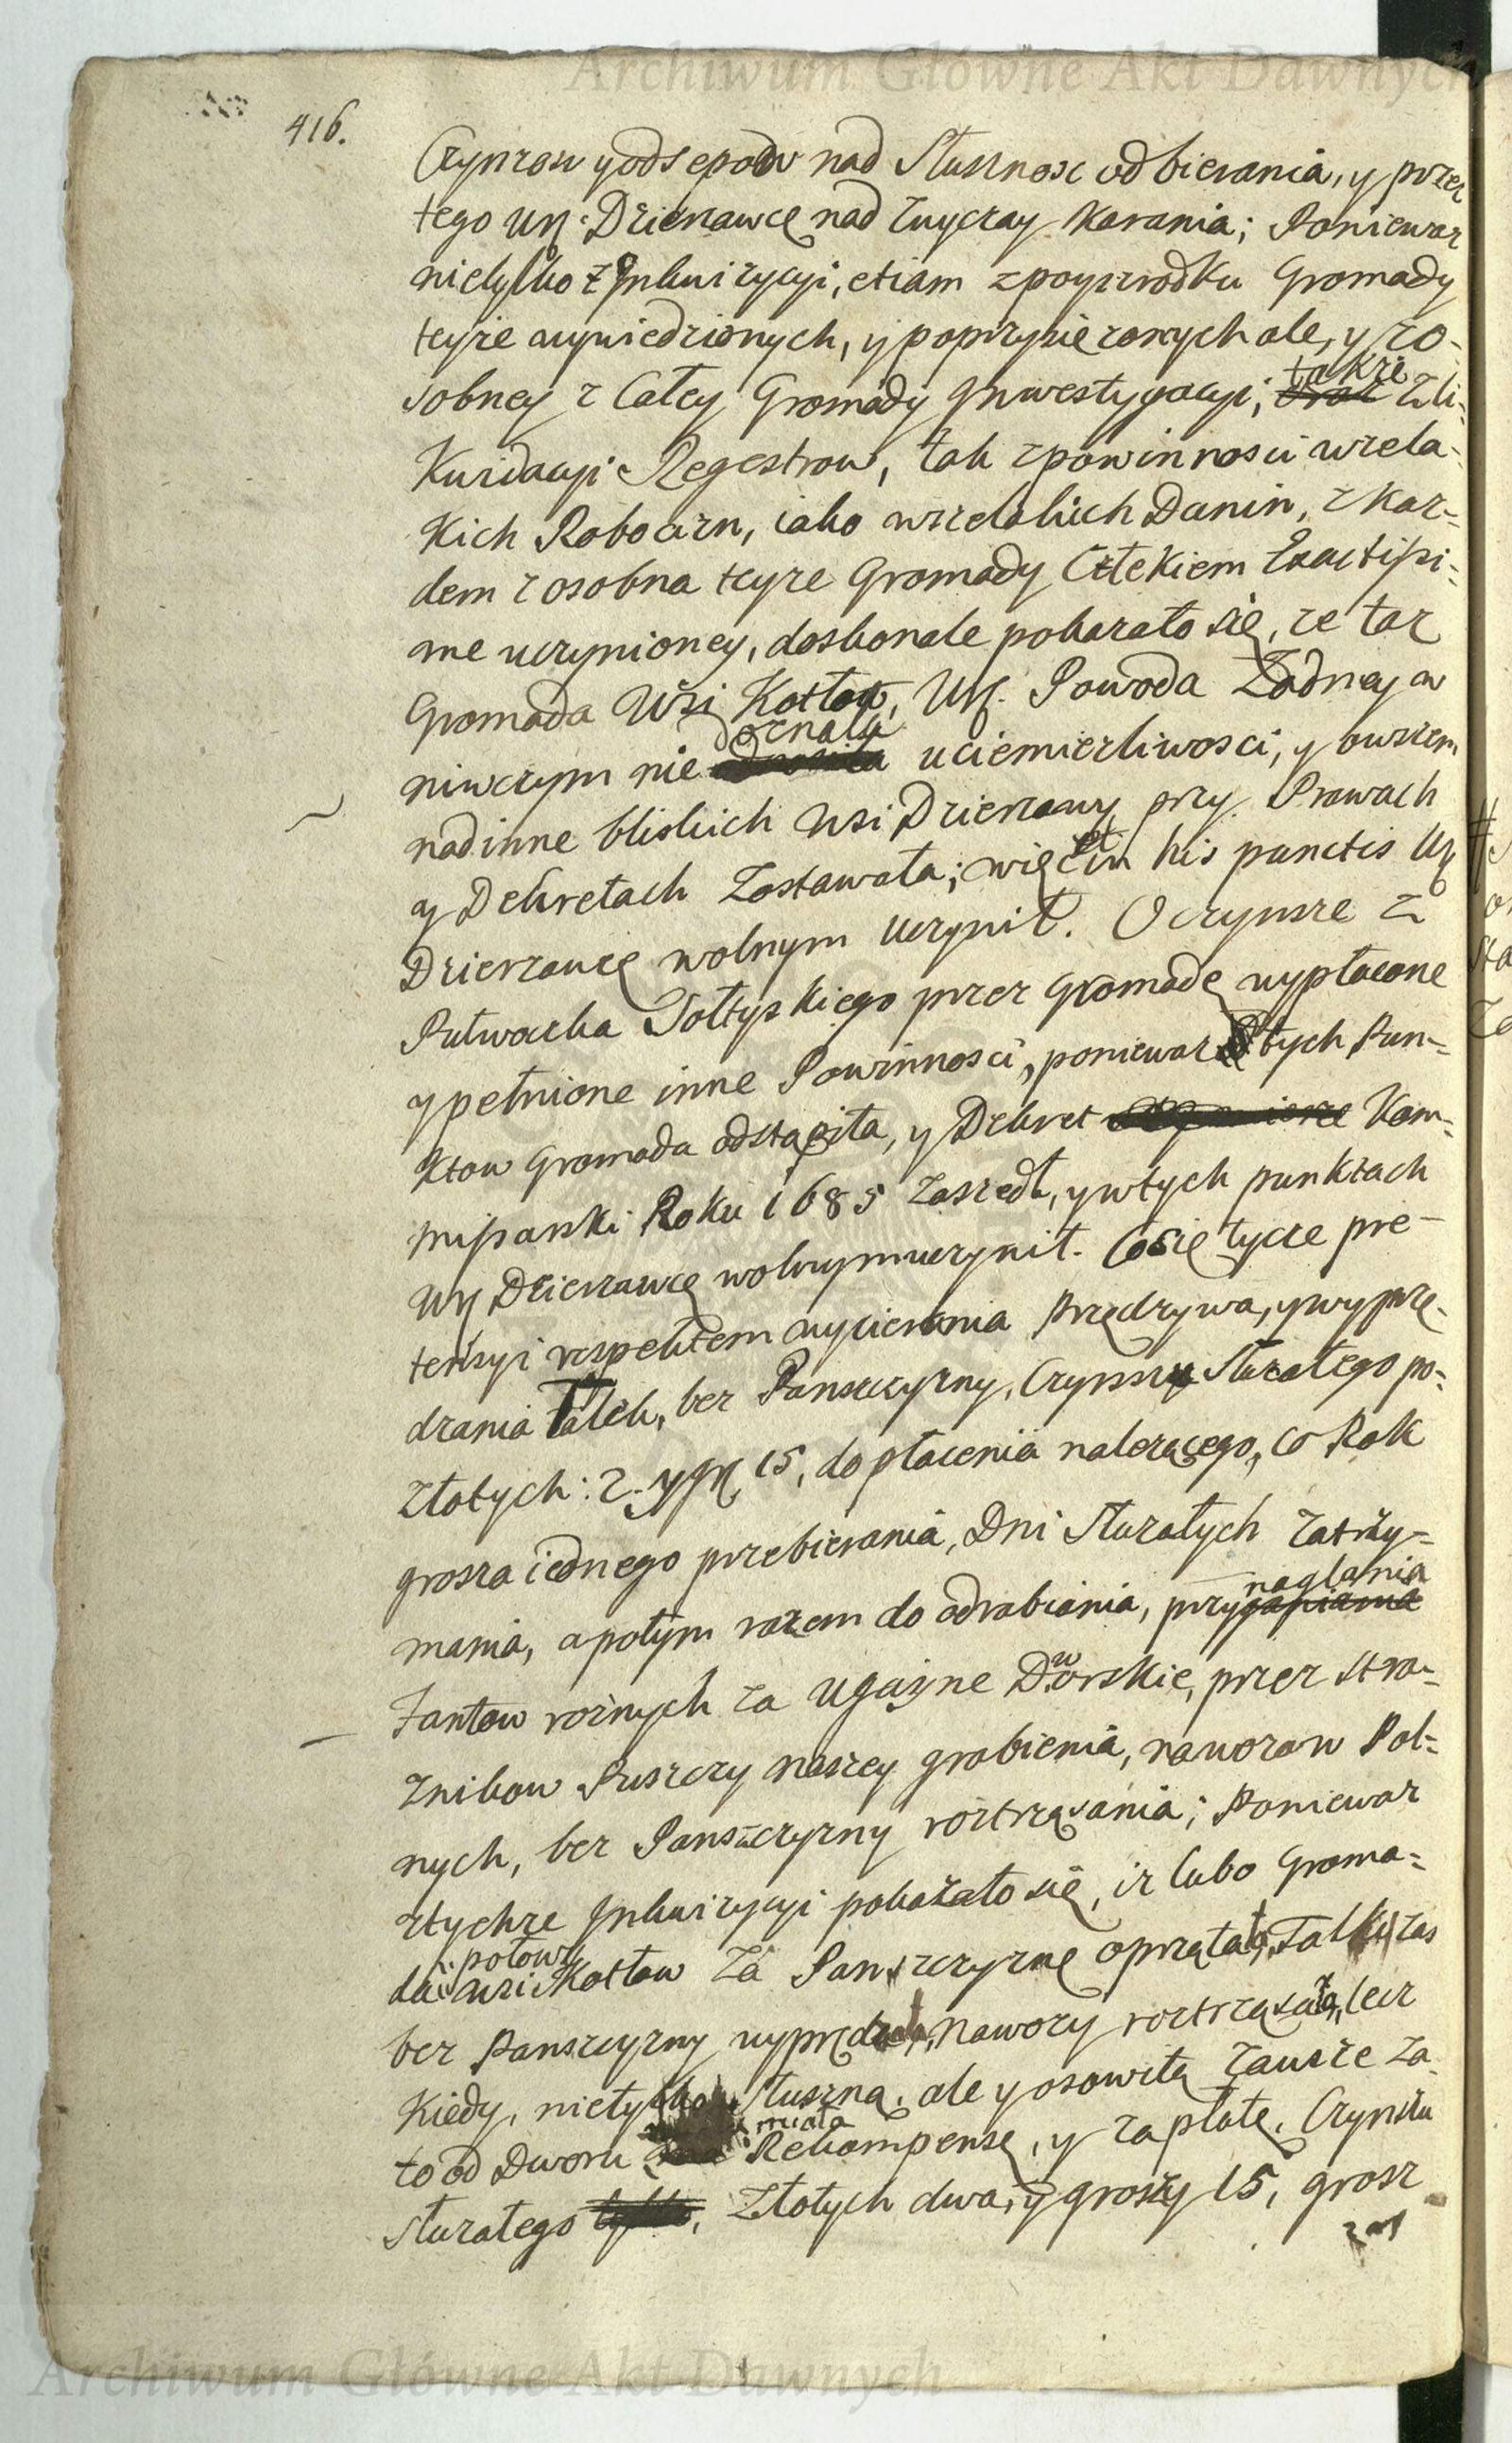 Archiwum Główne Akt Dawnych
416.
Czynszow y odsepow nad Słusznosc odbierania, y przez
tego Ur: Dzierzawcę nad zwyczay karania; Poniewaz
nietylko z Jnkwizycyi, etiam zpoyszrodku Gromady
teyze wywiedzionych, y poprzysiezonych ale, y zo-
sobney z Całey Gromady Jnwestygacyi, oraz takze z li-
kwidacyi Regestrow, tak zpowinnosci wszela-
kich Robocizn, iako wszelakich Danin, z kaz-
dem z osobna teyze Gromady Człekiem Exactissi-
me uczynioney, doskonale pokazało się, ze taz
Gromada Wsi Kotłow, Ur. Powoda Zadney w
niwczym nie doznała uciemiezliwosci, y owszem
nad inne bliskich Wsi Dzierzawy przy Prawach
y Dekretach Zostawała; więc et in his punctis Ur
Dzierzawcę wolnym uczynił. O czynsze z
Putwocka Sołtyskiego przez Gromadę wypłacone
y pełnione inne Powinnosci, poniewaz od tych Pun-
ktow Gromada odstąpiła, y Dekret Kom-
missarski Roku 1685 zaszedł, y wtych punktach
Ur Dzierzawcę wolnym uczynił. Co się tycze pre-
tensyi respektem wycierania Przędziwa, y wyprzę-
dzania Talek, bez Panszczyzny, Czynszu Stuzałego po
złotych: 2. y gr 15, do płacenia nalezącego, co Rok
grosza iednego przebierania, Dni Stuzałych zatrzy-
mania, a potym razem do odrabiania, przynaglania
fantow roznych za Ugaine Dworskie, przez Stra-
znikow Puszczy naszey grabienia, nawozow Pol-
nych, bez Panszczyzny roztrząsania; Poniewaz
ztychze Jnkwizycyi pokazało się, iz lubo Groma-
da połowy wsi Kotłow za Panszczyznę oprzątał, Talki zas
bez Panszczyzny wyprzędzała, nawozy roztrząsała, lecz
kiedy, nietylko Słuszną, ale y osowitą zawsze za
to od Dworu miała Rekompensę, y zapłatę, Czynszu
Stuzałego Złotych dwa, y groszy 15, grosz
zas
Archiwum Główne Akt Dawnych